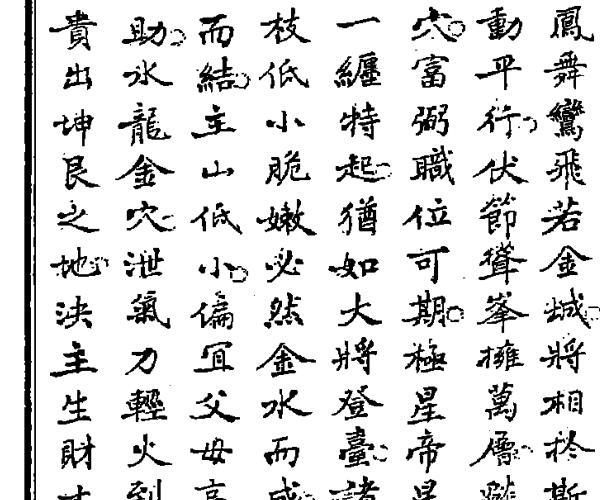 鳳舞鸞飛若金城將相於斯
動平行伏節聳峯擁萬層
穴富弼職位可期極星帝星
一纏特起猶如大將登臺諸
枝低小脆嫩必然金水而成
而結主山低小偏宜父母高
助水龍金穴泄氣力輕火到
貴出坤艮之地決主生財才